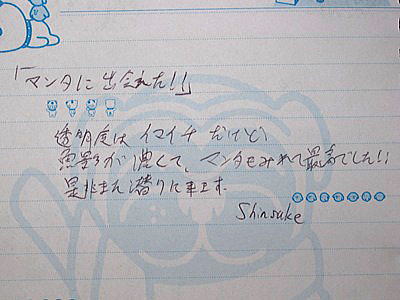 「マンタに出会れた!!」
透明度はイマイチだけど
魚影が濃くて、マンタもみれて最高でした!!
是非また潜りに来ます。
Shinsuke